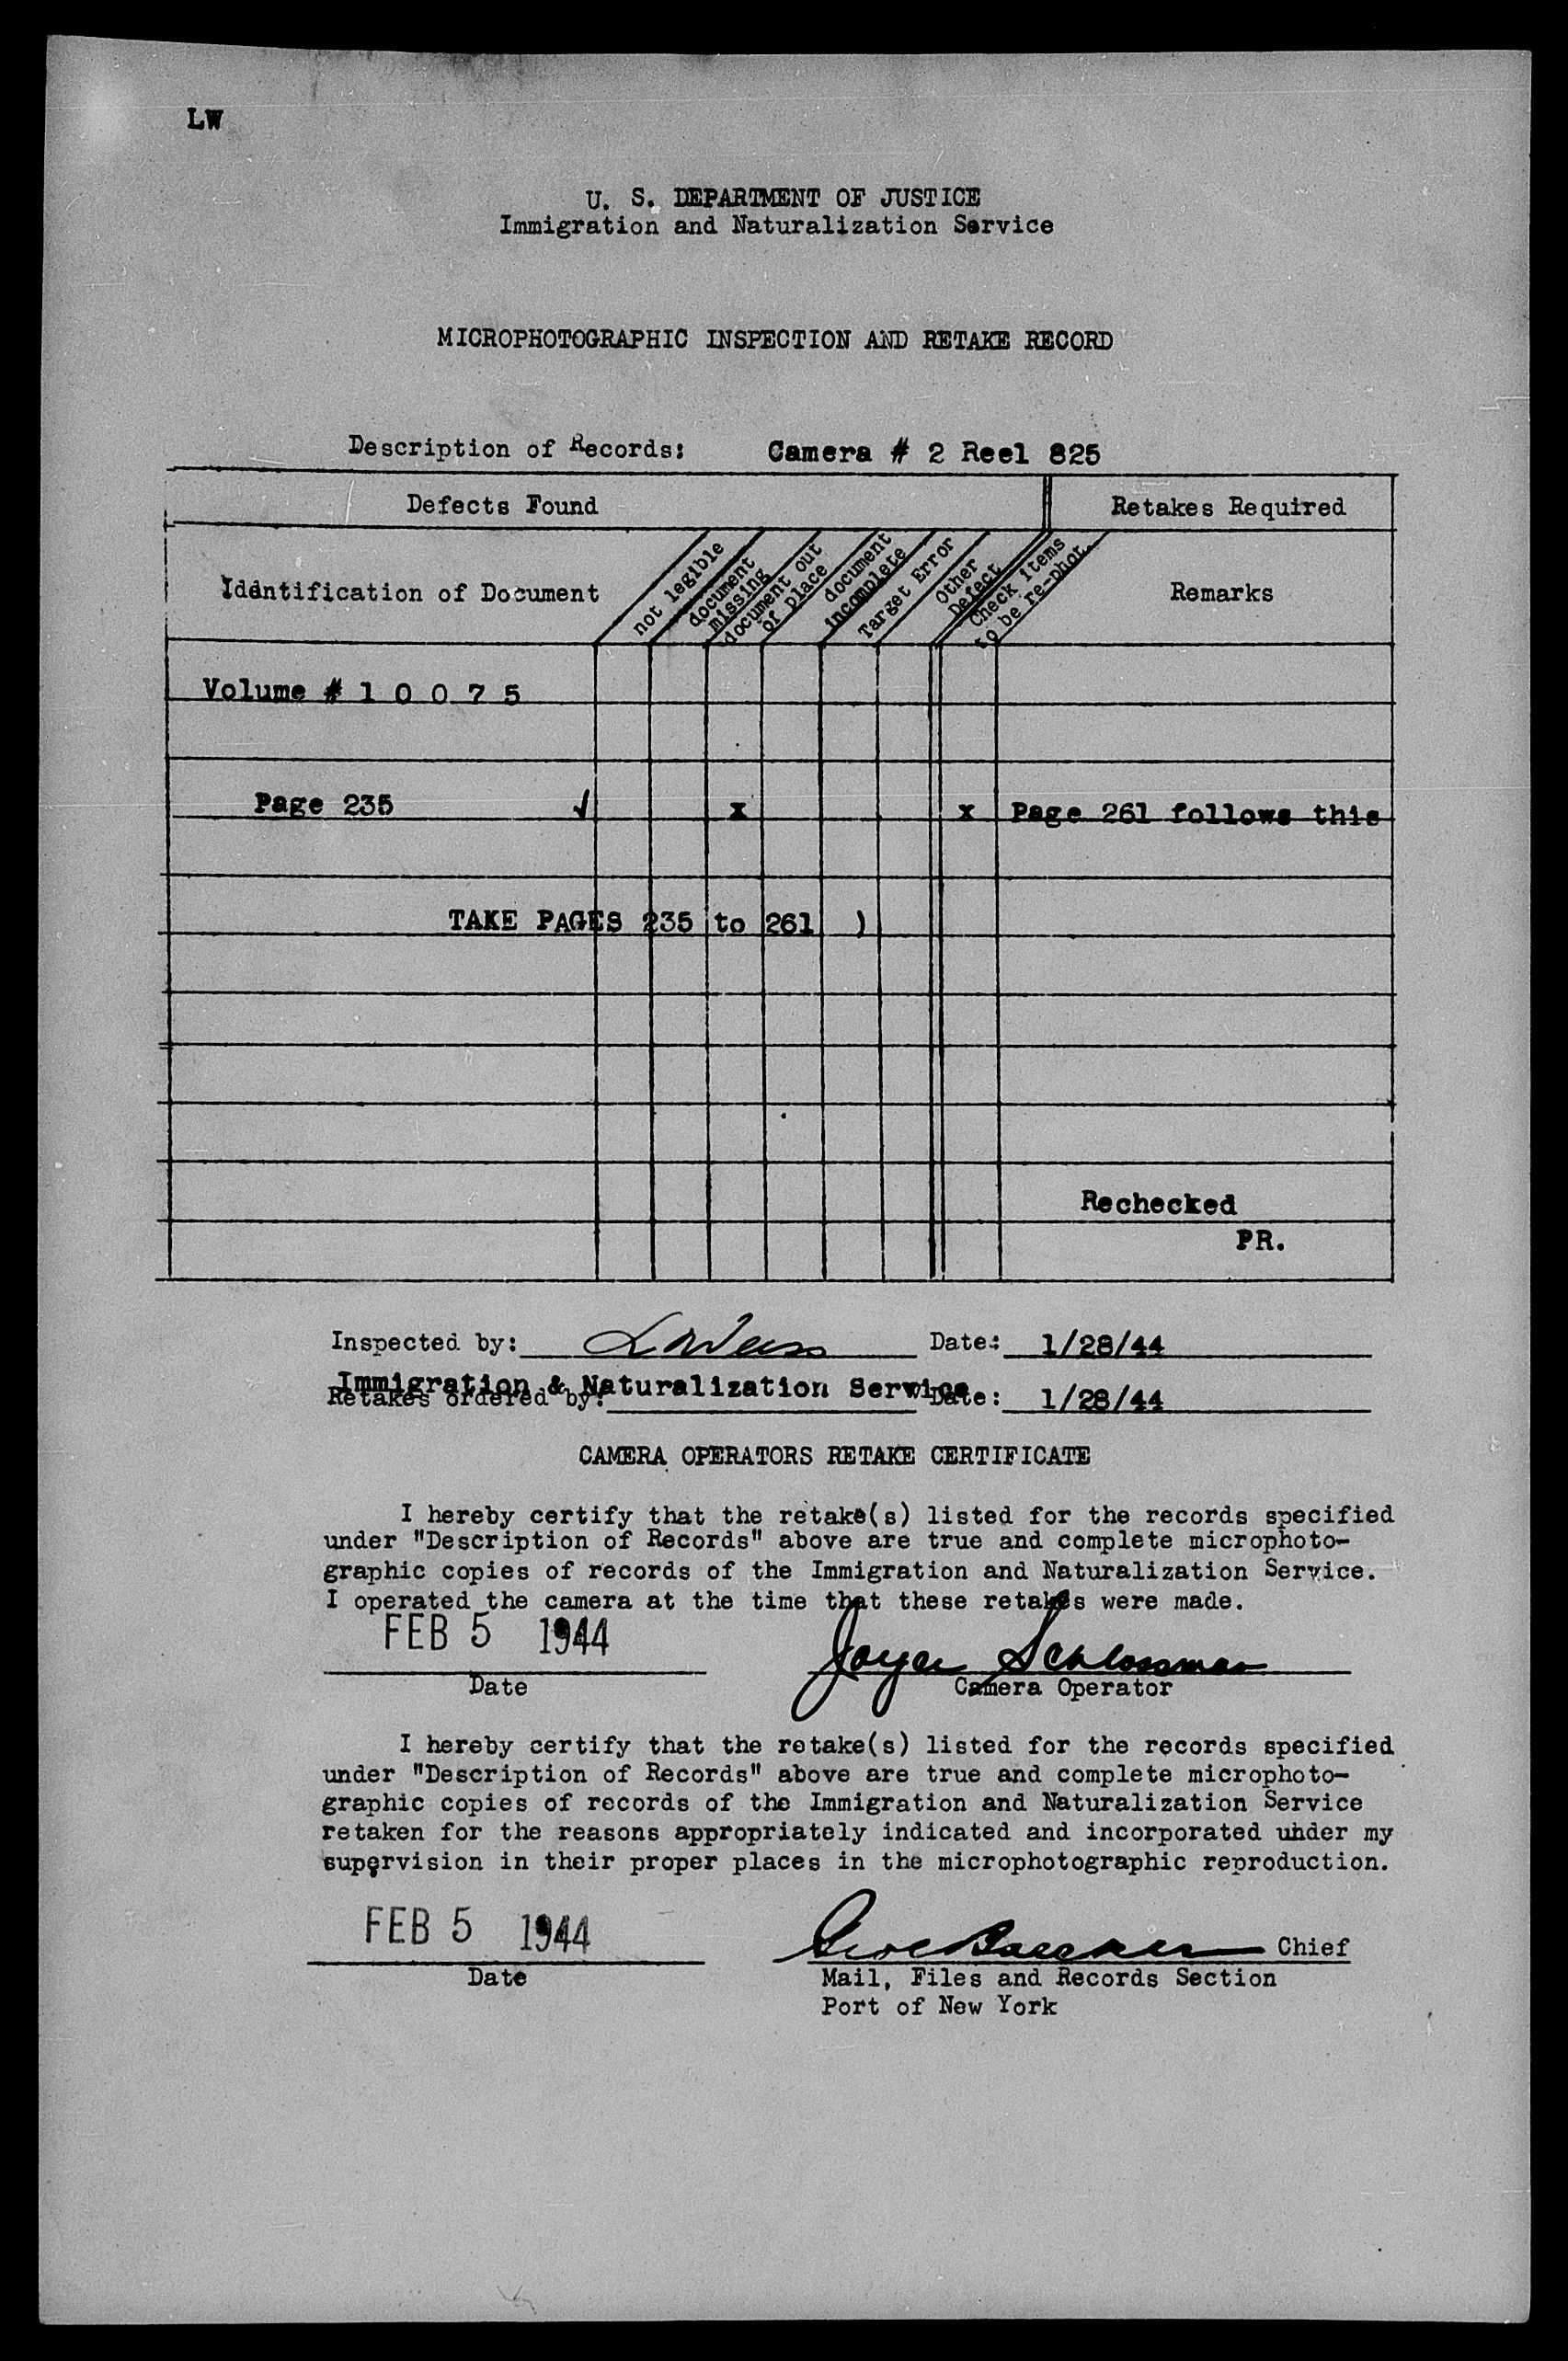 LW
U. S. DEPARTMENT OF JUSTICE
Immigration and Naturalization Service
MICROPHOTOGRAPHIC INSPECTION AND RETAKE RECORD
Description of Records: Camera # 2 Reel 825
Defects Found Retakes Required
Identification of Document
not legible
document missing
document out of place
document incomplete
Target Error
Other Defect
Check items to be re-phot.
Remarks
Volume # 1 0 0 7 5
Page 235 √ x x Page 261 follows this
TAKE PAGES 235 to 261 )
Rechecked
PR.
Inspected by: Date: 1/28/44
Immigration & Naturalization Service
Retakes ordered by: Date: 1/28/44
CAMERA OPERATORS RETAKE CERTIFICATE
I hereby certify that the retake(s) listed for the records specified
under "Description of Records" above are true and complete microphoto-
graphic copies of records of the Immigration and Naturalization Service.
I operated the camera at the time that these retakes were made.
FEB 5 1944 Schlossman
Date Camera Operator
I hereby certify that the retake(s) listed for the records specified
under "Description of Records" above are true and complete microphoto-
graphic copies of records of the Immigration and Naturalization Service
retaken for the reasons appropriately indicated and incorporated under my
supervision in their proper places in the microphotographic reproduction.
FEB 5 1944 Chief
Date Mail, Files and Records Section
Port of New York